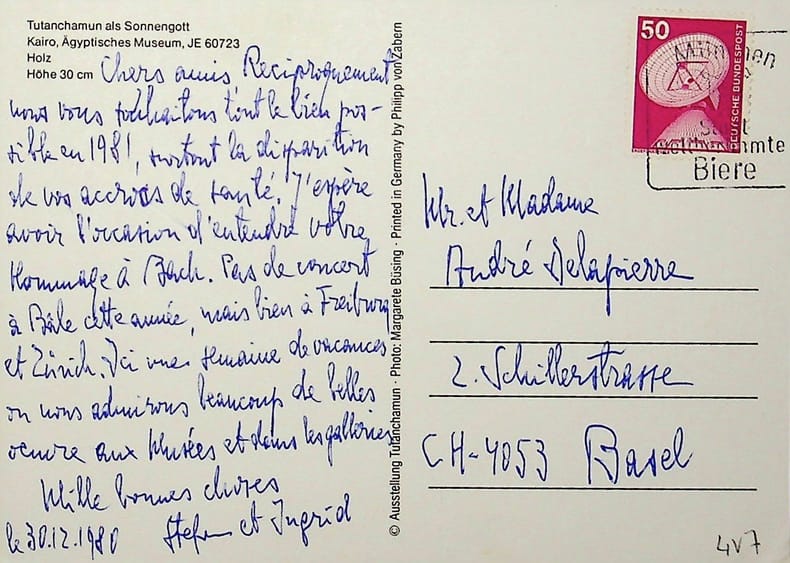 Tutanchamun als Sonnengott
Kairo, Ägyptisches Museum, JE 60723
Holz
Höhe 30 cm
Chers amis Reciproquement
nous vous souhaitons tout le bien pos-
sible en 1981, surtout la disparition
de vos accrocs de santé. J'espère
avoir l'occasion d'entendre votre
Hommage à Bach. Pas de concert
à Bâle cette année, mais bien à Freiburg
et Zürich. Ici une semaine de vacances
ou nous admirons beaucoup de belles
oeuvre aux Musées et dans les galleries
Mille bonnes choses
le 30.12.1980 Stefan et Ingrid
© Ausstellung Tutanchamun · Photo: Margarete Büsing · Printed in Germany by Philipp von Zabern
50
DEUTSCHE BUNDESPOST
München
Stadt
weltberühmte
Biere
Mr. et Madame
André Delapierre
2. Schillerstrasse
CH-4053 Basel
4V7